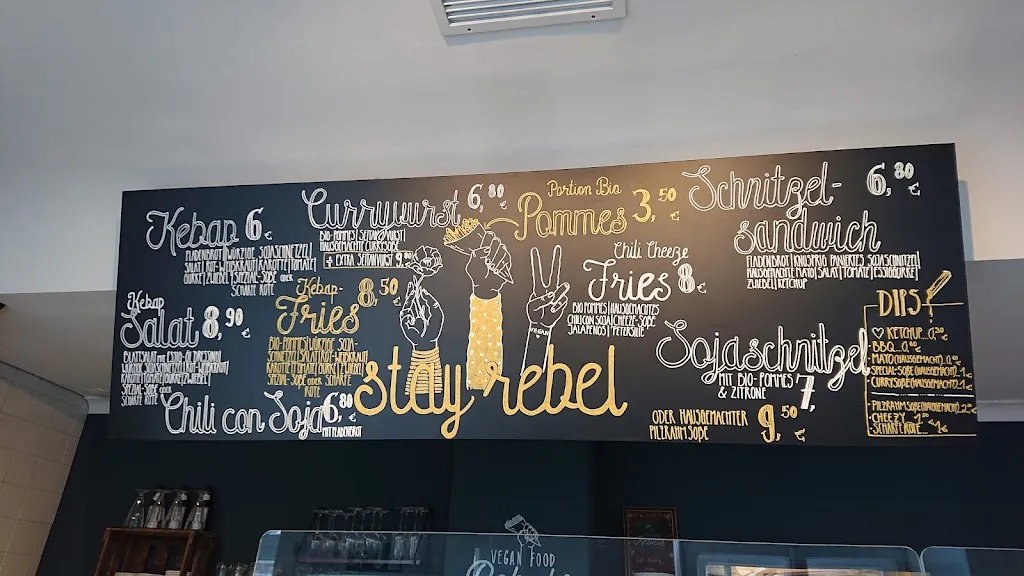 Kebap 6€
FLADENBROT | WÜRZIGE SOJASCHNETZEL |
SALAT | ROT-WEISSKRAUT | KAROTTE | TOMATE |
GURKE | ZWIEBEL | SPEZIAL-SOßE oder
SCHARFE ROTE
Currywurst 6,80€
BIO-POMMES | SEITANWURST |
HAUSGEMACHTE CURRYSOßE
+ EXTRA SEITANWURST
Portion Bio
Pommes 3,50€
Schnitzel-
sandwich 6,80€
FLADENBROT | KNUSPRIG PANIERTES SOJASCHNITZEL |
HAUSGEMACHTE MAYO | SALAT | TOMATE | ESSIGGURKE |
ZWIEBEL | KETCHUP
Kebap
Salat 8,90€
BLATTSALAT mit ESSIG-ÖL DRESSING
KAROTTE
SPEZIAL-SOßE oder
SCHARFE ROTE
Kebap-
Fries 8,50€
BIO-POMMES | WÜRZIGE SOJA-
SCHNETZEL | SALAT | ROT-WEISSKRAUT |
KAROTTE | TOMATE | GURKE | ZWIEBEL |
SPEZIAL-SOßE oder SCHARFE
ROTE
Chili Cheeze
Fries 8€
BIO POMMES | HAUSGEMACHTES
CHILI CON SOJA | CHEEZE-SOßE
JALAPENOS | PETERSILIE
Chili con Soja 6,80€
MIT FLADENBROT
stay rebel
Sojaschnitzel
MIT BIO-POMMES
& ZITRONE 7,
ODER HAUSGEMACHTER
PILZRAHMSOßE 9,50€
DIPS
KETCHUP...
BBQ...
MAYO (HAUSGEMACHT)
SPECIAL-SOßE (HAUSGEMACHT) 1€
CURRYSOßE (HAUSGEMACHT) 1€
PILZRAHMSOßE (HAUSGEMACHT)
CHEEZY
SCHARFE ROTE
VEGAN FOOD